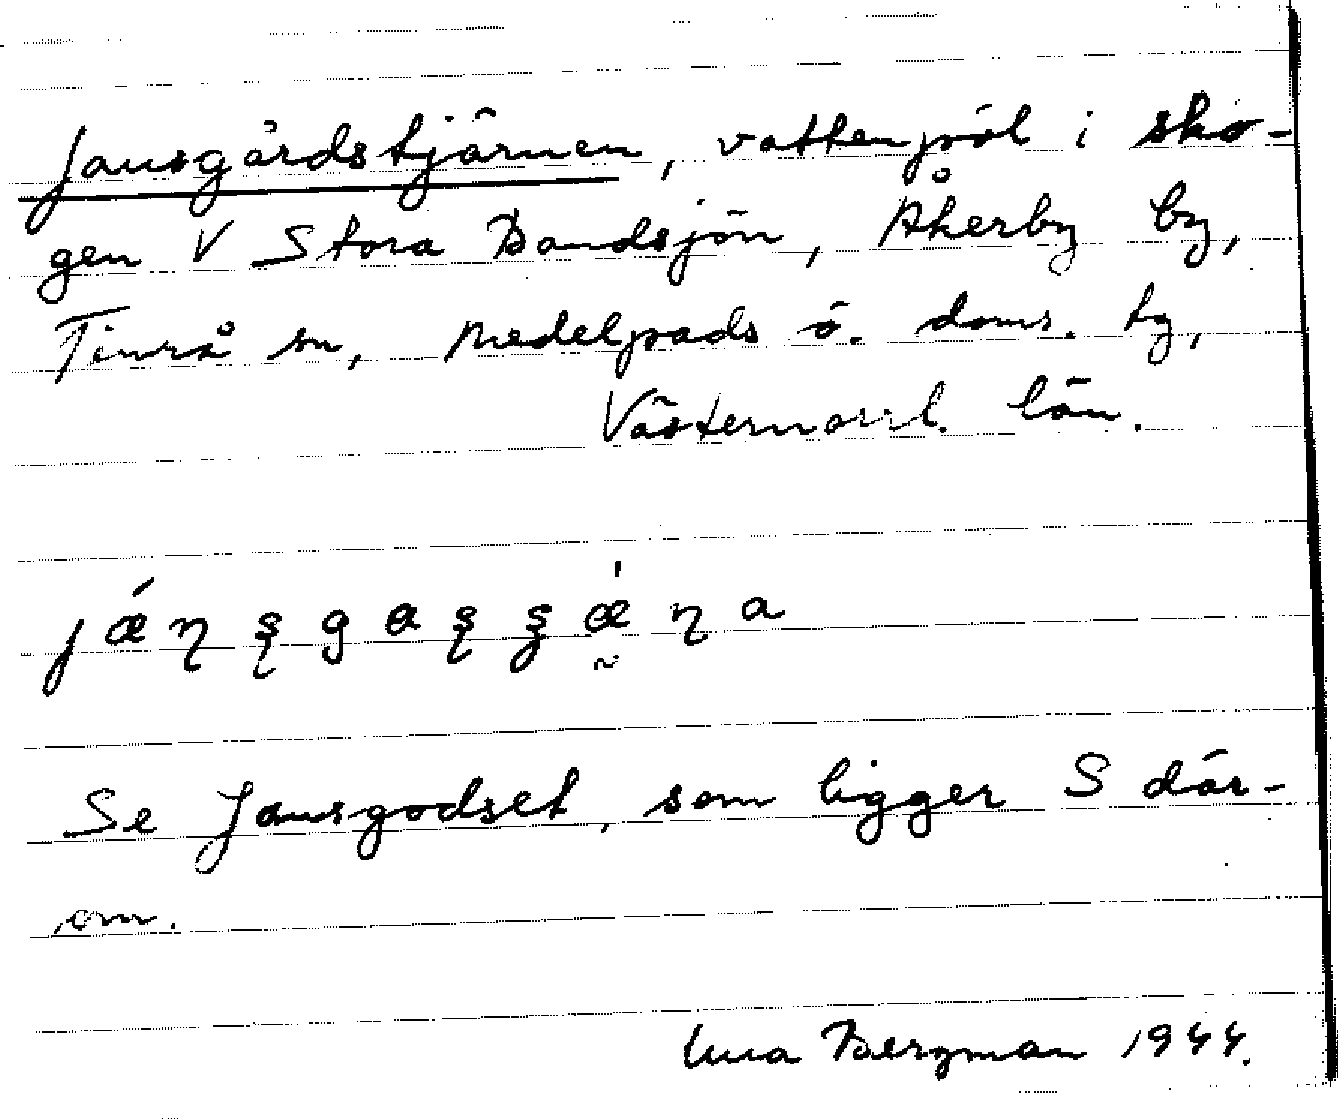 Jansgårdstjärnen, vattenpöl i sko-
gen V Stora Bandsjön, Åkerby by,
Timrå sn, Medelpads ö. doms. tg,
Västernorrl. län.
Se Jansgodset, som ligger S där-
om.
Bergman 1944.